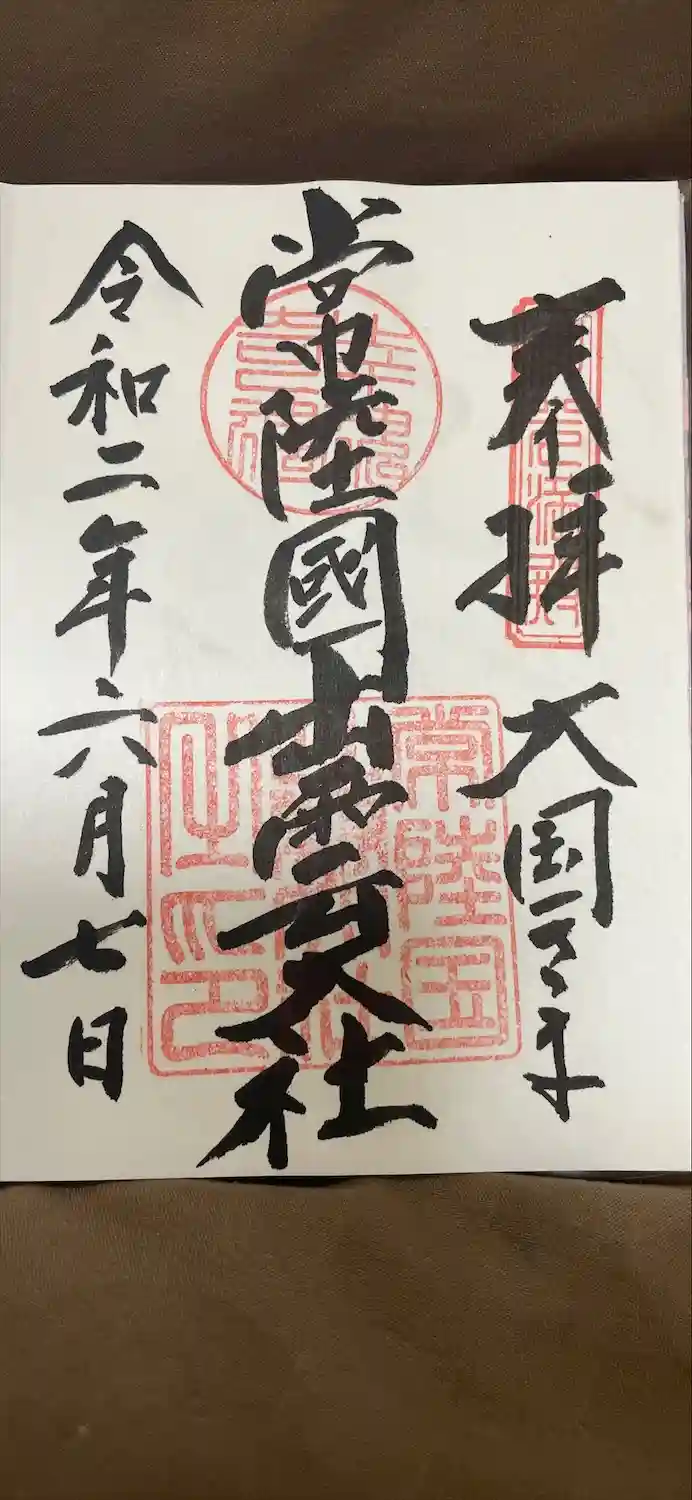 奉拝 大国さま
常陸國出雲大社
令和二年六月七日
常陸国
之印